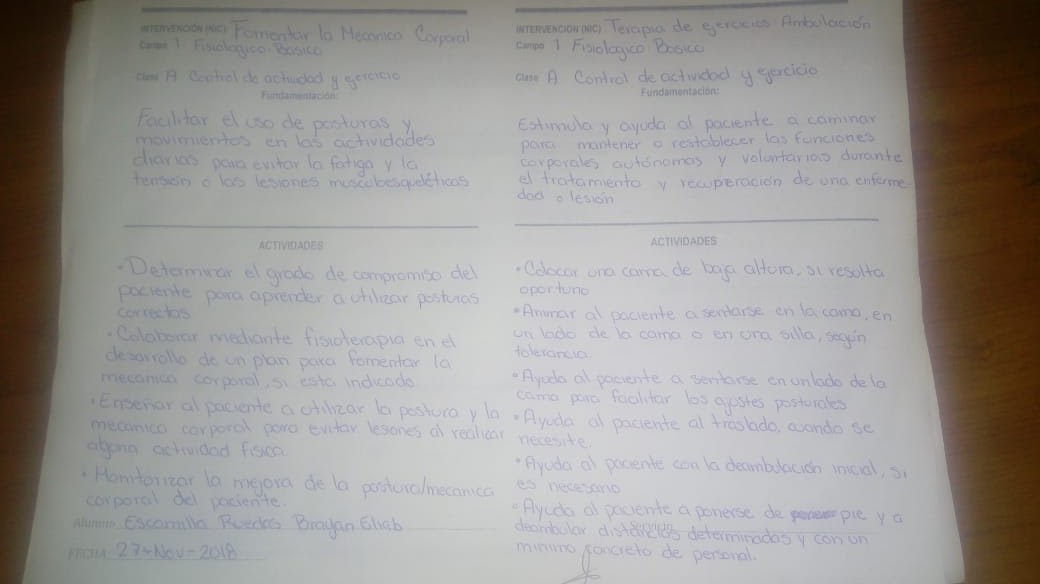 INTERVENCIÓN (NIC) Fomentar la Mecanica Corporal
Campo 1 Fisiologico: Basico
Clase A Control de actividad y ejercicio
Fundamentación:
Facilitar el uso de posturas y
movimientos en las actividades
diarias para evitar la fatiga y la
tensión o las lesiones musculoesqueléticas
ACTIVIDADES
• Determinar el grado de compromiso del
paciente para aprender a utilizar posturas
correctas
• Colaborar mediante fisioterapia en el
desarrollo de un plan para fomentar la
mecanica corporal, si esta indicado
• Enseñar al paciente a utilizar la postura y la
mecanica corporal para evitar lesiones al realizar
alguna actividad fisica.
• Monitorizar la mejora de la postura/mecanica
corporal del paciente.
Alumno Escamilla Ruedas Brayan Eliab
FECHA 27-Nov-2018
INTERVENCIÓN (NIC) Terapia de ejercicios: Ambulación
Campo 1 Fisiologico Basico
Clase A Control de actividad y ejercicio
Fundamentación:
Estimula y ayuda al paciente a caminar
para mantener o restablecer las funciones
corporales autónomas y voluntarias durante
el tratamiento y recuperación de una enferme
dad o lesión
ACTIVIDADES
• Colocar una cama de baja altura, si resulta
oportuno
• Animar al paciente a sentarse en la cama, en
un lado de la cama o en una silla, según
tolerancia.
• Ayuda al paciente a sentarse en un lado de la
cama para facilitar los ajustes posturales
• Ayuda al paciente al traslado, cuando se
necesite.
• Ayuda al paciente con la deambulación inicial, si
es necesario
• Ayuda al paciente a ponerse de pie y a
deambular distancias determinadas y con un
minimo concreto de personal.